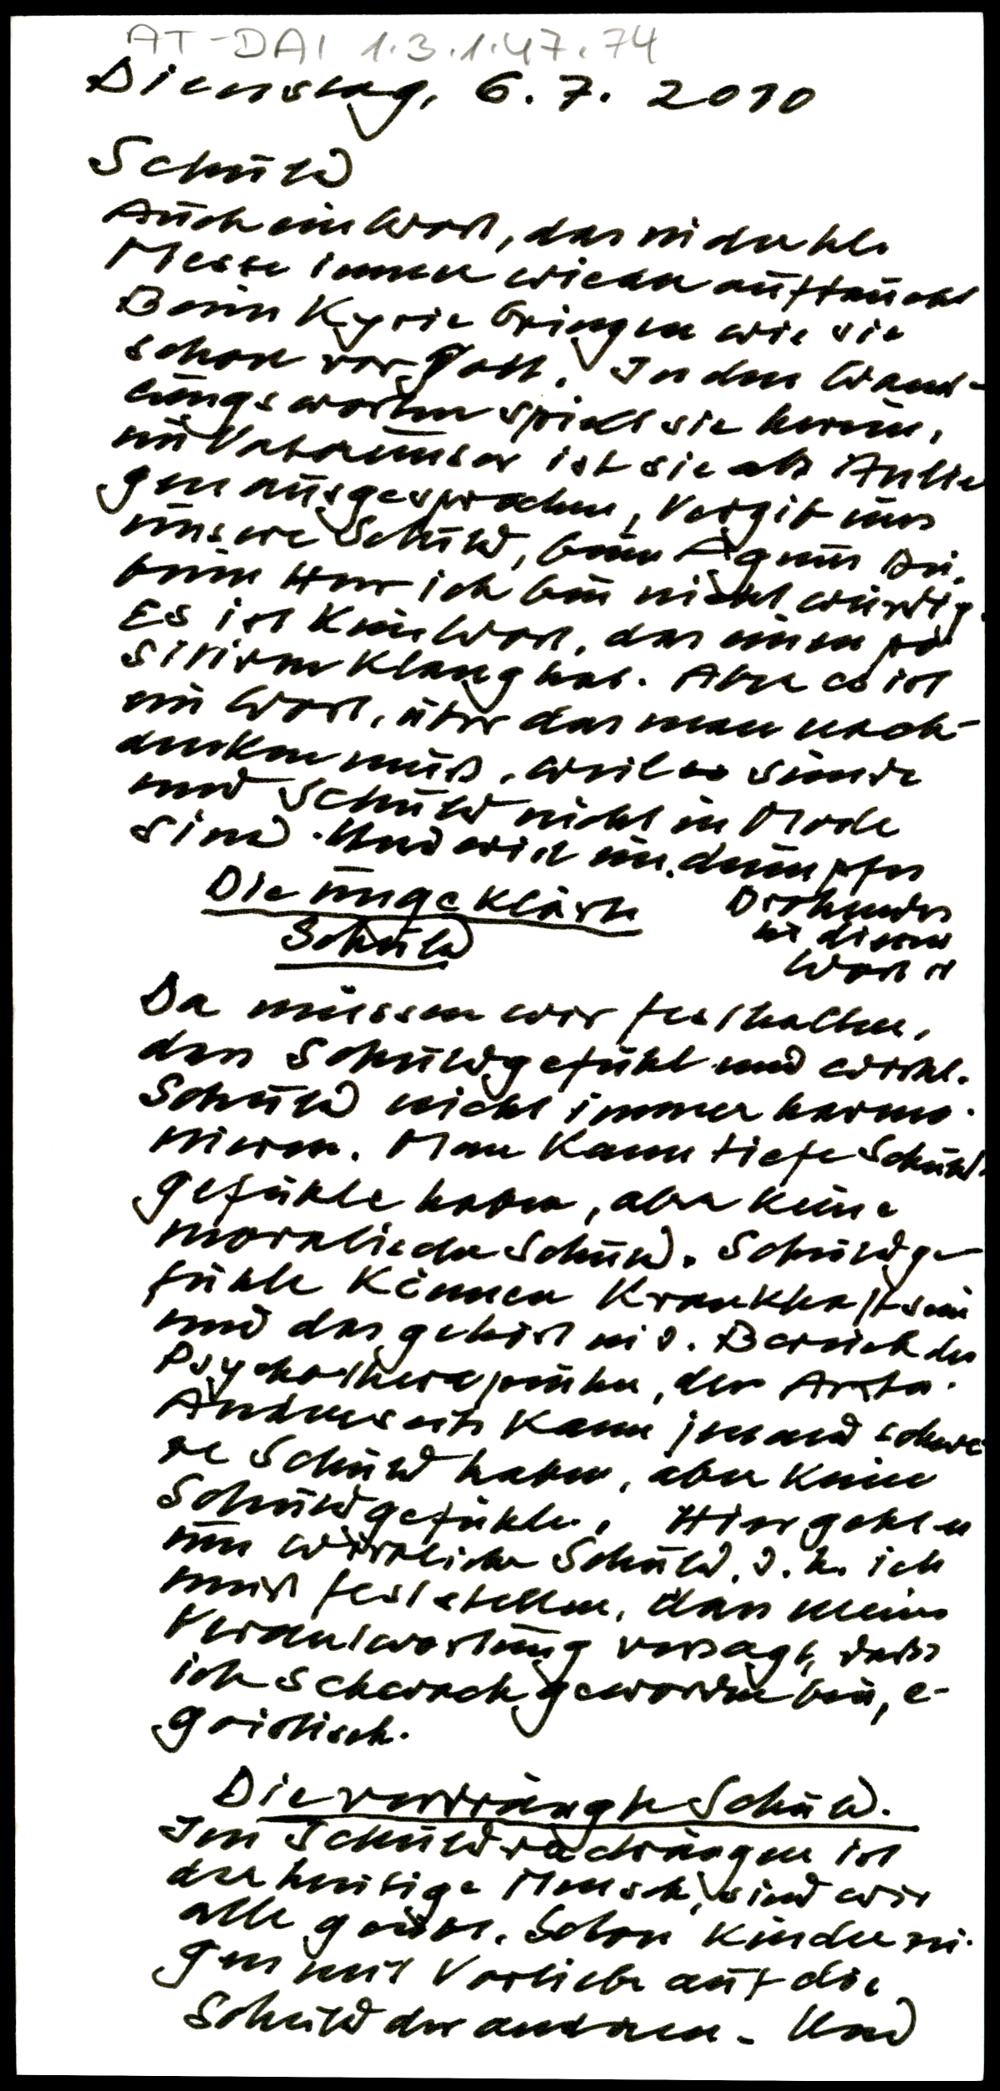 AT-DAI 1.3.1.47.74
Dienstag, 6.7.2010
Schuld
Auch ein Wort, das in der hl.
Messe immer wieder auftaucht
Beim Kyrie bringen wir sie
schon vor Gott. In den Wand-
lungsworten spielt sie herein,
im Vaterunser ist sie als Anlie
gen ausgesprochen, Vergib uns
unsere Schuld, beim Agnus Dei,
beim Herr ich bin nicht würdig.
Es ist kein Wort, das einen po
sitiven Klang hat. Aber es ist
ein Wort, über das man nach-
denken muß, weil Sünde
und Schuld nicht in Mode
sind. Und wird ein dumpfes
Drohendes
in diesem
Wort ist
Die ungeklärte
Schuld
Da müssen wir festhalten,
dass Schuldgefühl und wirkl.
Schuld nicht immer harmo-
nieren. Man kann tiefe Schuld-
gefühle haben, aber keine
moralische Schuld. Schuldge-
fühle können krankhaft sein
und das gehört in d. Bereich des
Psychotherapeuten, des Arztes.
Andrerseits kann jemand schwe
re Schuld haben, aber keine
Schuldgefühle. Hier geht es
um wirkliche Schuld, d.h. ich
muß feststellen, dass meine
Verantwortung versagt, daß
ich schwach geworden bin, e-
goistisch.
Die verdrängte Schuld.
Im Schuldverdrängen ist
der heutige Mensch, sind wir
alle groß. Schon Kinder zei-
gen mit Vorliebe auf die
Schuld der anderen. Und